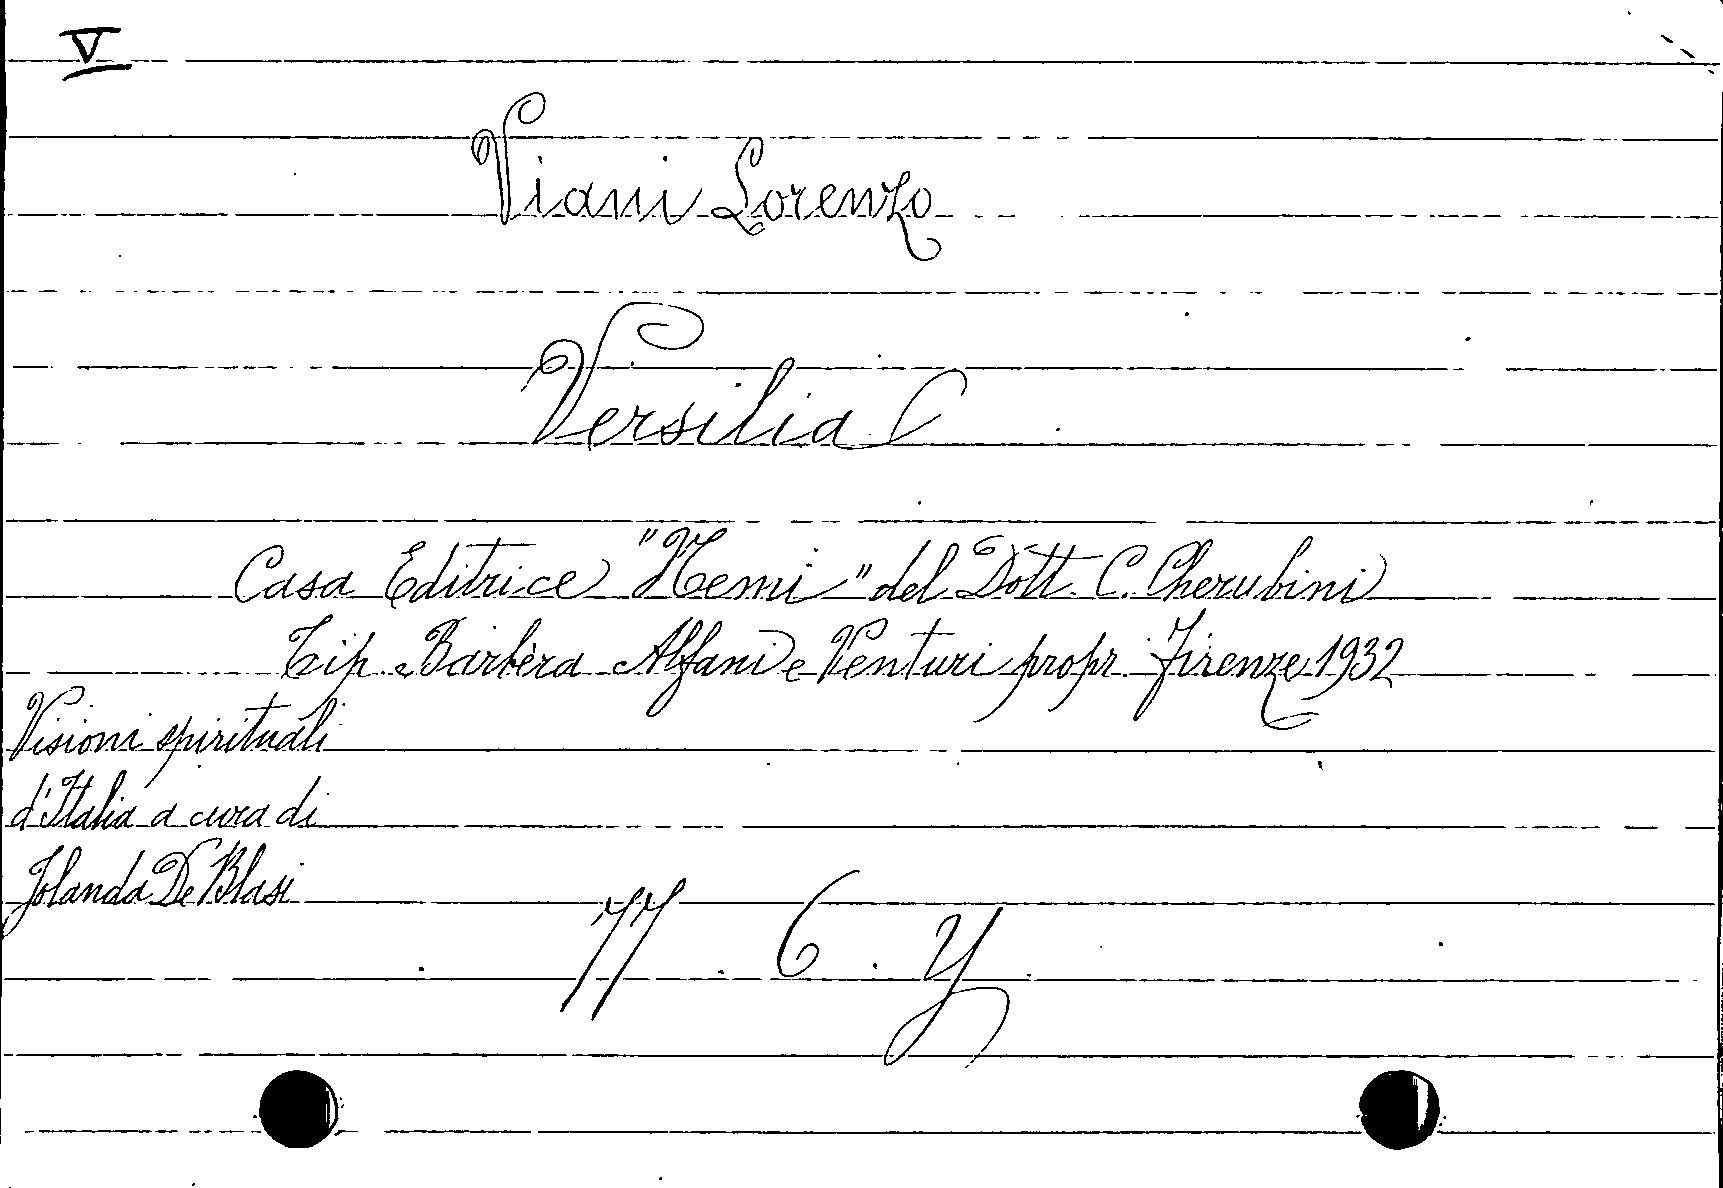 V
Viani Lorenzo
Versilia
Casa Editrice "Nemi" del Dott. C. Cherubini
Tip. Barbèra Alfani e Venturi propr. Firenze 1932
Visioni spirituali
d'Italia a cura di
Jolanda De Blasi
77. 6. Y